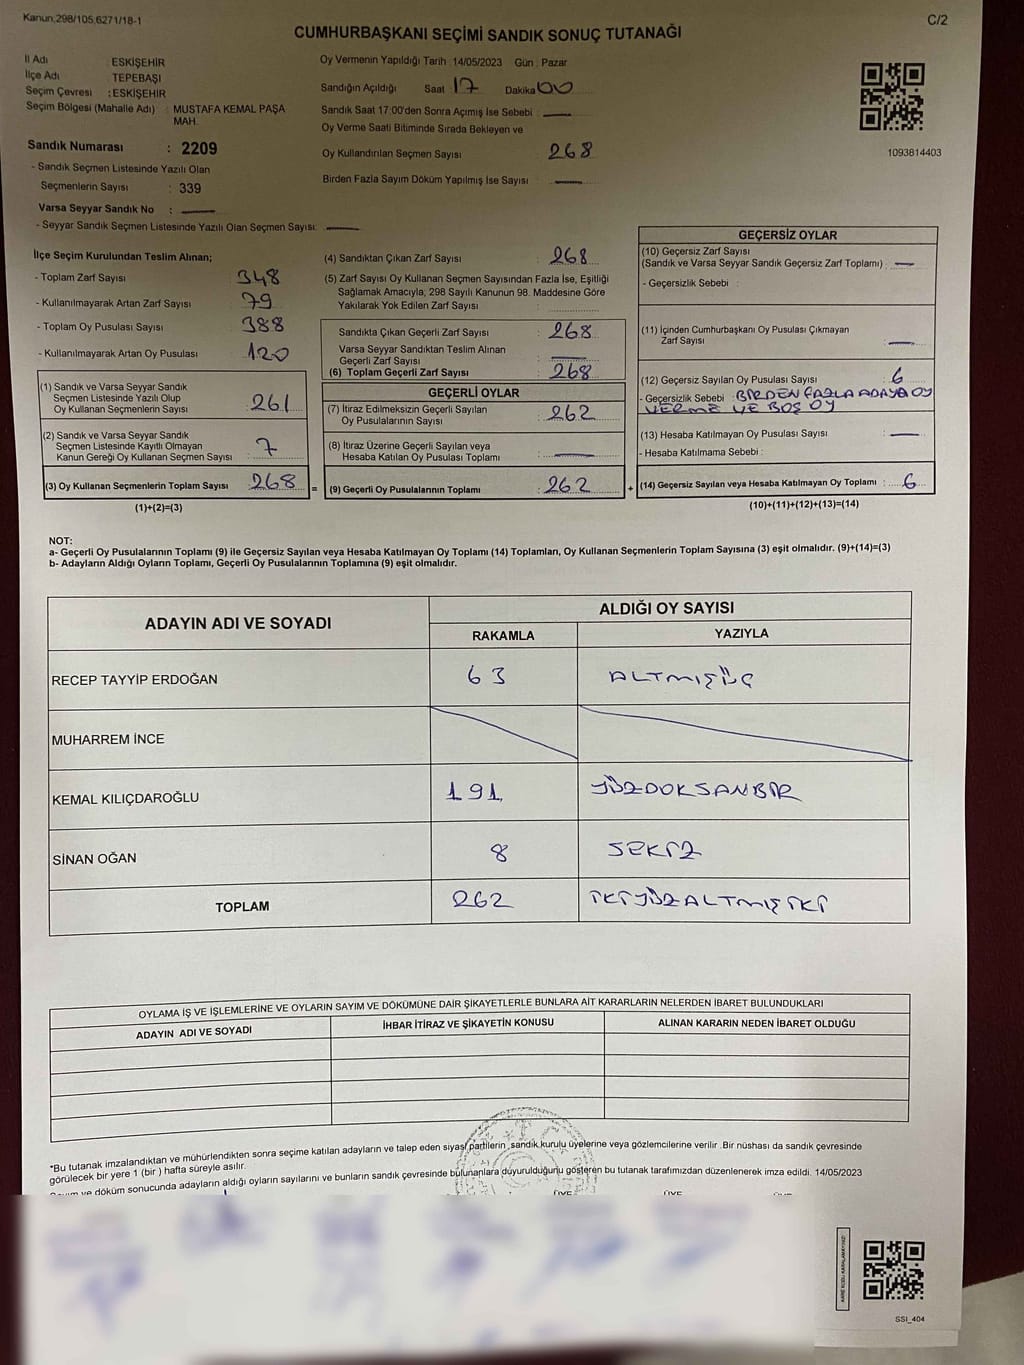 Kanun,298/105,6271/18-1
C/2
CUMHURBAŞKANI SEÇİMİ SANDIK SONUÇ TUTANAĞI
İl Adı : ESKİŞEHİR
İlçe Adı TEPEBAŞI
Seçim Çevresi : ESKİŞEHİR
Seçim Bölgesi (Mahalle Adı) : MUSTAFA KEMAL PAŞA
MAH.
Sandık Numarası : 2209
- Sandık Seçmen Listesinde Yazılı Olan
Seçmenlerin Sayısı : 339
Varsa Seyyar Sandık No : —
- Seyyar Sandık Seçmen Listesinde Yazılı Olan Seçmen Sayısı: —
Oy Vermenin Yapıldığı Tarih : 14/05/2023 Gün : Pazar
Sandığın Açıldığı Saat 17 Dakika 00
Sandık Saat 17:00'den Sonra Açımış İse Sebebi : —
Oy Verme Saati Bitiminde Sırada Bekleyen ve
Oy Kullandırılan Seçmen Sayısı : 268
Birden Fazla Sayım Döküm Yapılmış İse Sayısı : —
1093814403
İlçe Seçim Kurulundan Teslim Alınan;
- Toplam Zarf Sayısı : 348
- Kullanılmayarak Artan Zarf Sayısı : 79
- Toplam Oy Pusulası Sayısı : 388
- Kullanılmayarak Artan Oy Pusulası : 120
(1) Sandık ve Varsa Seyyar Sandık
Seçmen Listesinde Yazılı Olup
Oy Kullanan Seçmenlerin Sayısı : 261
(2) Sandık ve Varsa Seyyar Sandık
Seçmen Listesinde Kayıtlı Olmayan
Kanun Gereği Oy Kullanan Seçmen Sayısı : 7
(3) Oy Kullanan Seçmenlerin Toplam Sayısı : 268
(1)+(2)=(3)
(4) Sandıktan Çıkan Zarf Sayısı : 268
(5) Zarf Sayısı Oy Kullanan Seçmen Sayısından Fazla İse, Eşitliği
Sağlamak Amacıyla, 298 Sayılı Kanunun 98. Maddesine Göre
Yakılarak Yok Edilen Zarf Sayısı :
Sandıkta Çıkan Geçerli Zarf Sayısı : 268
Varsa Seyyar Sandıktan Teslim Alınan
Geçerli Zarf Sayısı : —
(6) Toplam Geçerli Zarf Sayısı : 268
GEÇERLİ OYLAR
(7) İtiraz Edilmeksizin Geçerli Sayılan
Oy Pusulalarının Sayısı : 262
(8) İtiraz Üzerine Geçerli Sayılan veya
Hesaba Katılan Oy Pusulası Toplamı : —
= (9) Geçerli Oy Pusulalarının Toplamı : 262
GEÇERSİZ OYLAR
(10) Geçersiz Zarf Sayısı
(Sandık ve Varsa Seyyar Sandık Geçersiz Zarf Toplamı) : —
- Geçersizlik Sebebi :
(11) İçinden Cumhurbaşkanı Oy Pusulası Çıkmayan
Zarf Sayısı : —
(12) Geçersiz Sayılan Oy Pusulası Sayısı : 6
- Geçersizlik Sebebi : BİRDEN FAZLA ADAYA OY
VERME VE BOŞ OY
(13) Hesaba Katılmayan Oy Pusulası Sayısı : —
- Hesaba Katılmama Sebebi :
+ (14) Geçersiz Sayılan veya Hesaba Katılmayan Oy Toplamı : 6
(10)+(11)+(12)+(13)=(14)
NOT:
a- Geçerli Oy Pusulalarının Toplamı (9) ile Geçersiz Sayılan veya Hesaba Katılmayan Oy Toplamı (14) Toplamları, Oy Kullanan Seçmenlerin Toplam Sayısına (3) eşit olmalıdır. (9)+(14)=(3)
b- Adayların Aldığı Oyların Toplamı, Geçerli Oy Pusulalarının Toplamına (9) eşit olmalıdır.
ADAYIN ADI VE SOYADI ALDIĞI OY SAYISI
RAKAMLA YAZIYLA
RECEP TAYYİP ERDOĞAN 63 ALTMIŞÜÇ
MUHARREM İNCE
KEMAL KILIÇDAROĞLU 191 YÜZDOKSANBİR
SİNAN OĞAN 8 SEKİZ
TOPLAM 262 İKİYÜZALTMIŞİKİ
OYLAMA İŞ VE İŞLEMLERİNE VE OYLARIN SAYIM VE DÖKÜMÜNE DAİR ŞİKAYETLERLE BUNLARA AİT KARARLARIN NELERDEN İBARET BULUNDUKLARI
ADAYIN ADI VE SOYADI İHBAR İTİRAZ VE ŞİKAYETİN KONUSU ALINAN KARARIN NEDEN İBARET OLDUĞU
*Bu tutanak imzalandıktan ve mühürlendikten sonra seçime katılan adayların ve talep eden siyasi partilerin ,sandık kurulu üyelerine veya gözlemcilerine verilir .Bir nüshası da sandık çevresinde
görülecek bir yere 1 (bir ) hafta süreyle asılır.
ve döküm sonucunda adayların aldığı oyların sayılarını ve bunların sandık çevresinde bulunanlara duyurulduğunu gösteren bu tutanak tarafımızdan düzenlenerek imza edildi. 14/05/2023
SSI_404